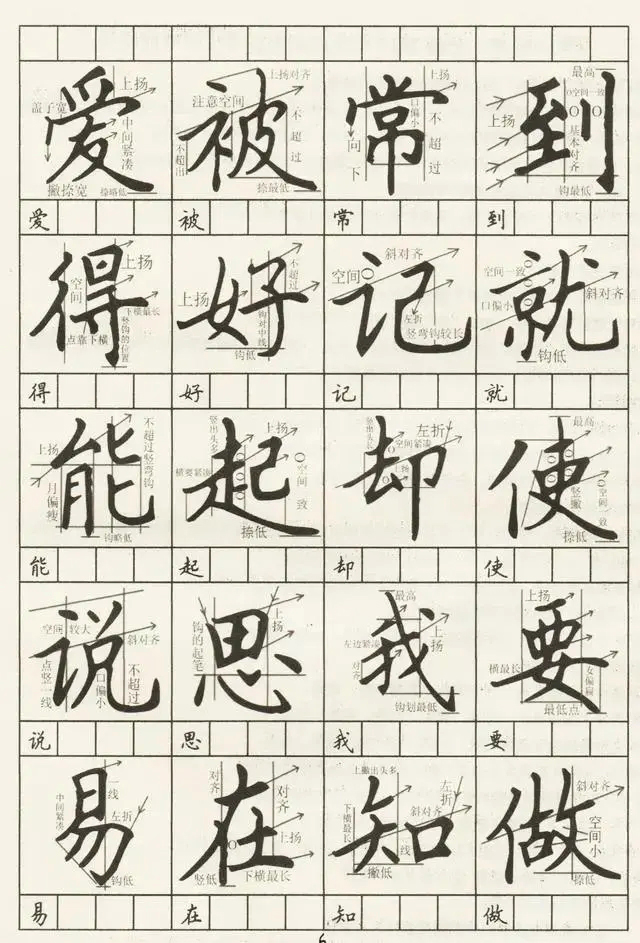 爱 被 常 到
上扬 盖子宽 中间紧凑 撇捺宽 捺略低
上扬对齐 注意空间 不超过 不超出 捺最低
上扬 口偏小 不超过 向下
最高 空间一致 上扬 基本对齐 钩最低
爱 被 常 到
得 好 记 就
空间 上扬 下横最长 点靠下横 竖钩的位置
不超过 上扬 钩对中线 钩低
斜对齐 空间 左折 竖弯钩较长
空间一致 口偏小 斜对齐 钩低
得 好 记 就
能 起 却 使
上扬 不超过竖弯钩 月偏瘦 钩略低
竖出头多 上扬 横要紧凑 空间一致 捺低
竖出头长 左折 空间紧凑 上扬
最高 竖撇 空间一致 捺低
能 起 却 使
说 思 我 要
空间较大 斜对齐 点竖一线 口偏小 不超过
钩的起笔 上扬
最高 上扬 左边紧凑 对齐 钩划最低
上扬 横最长 女偏扁 最低点
说 思 我 要
易 在 知 做
一线 中间紧凑 左折 钩低
对齐 对齐 上扬 竖低 下横最长
上撇出头多 左折 下横最长 斜对齐 一线 撇低
斜对齐 空间小 捺低
易 在 知 做